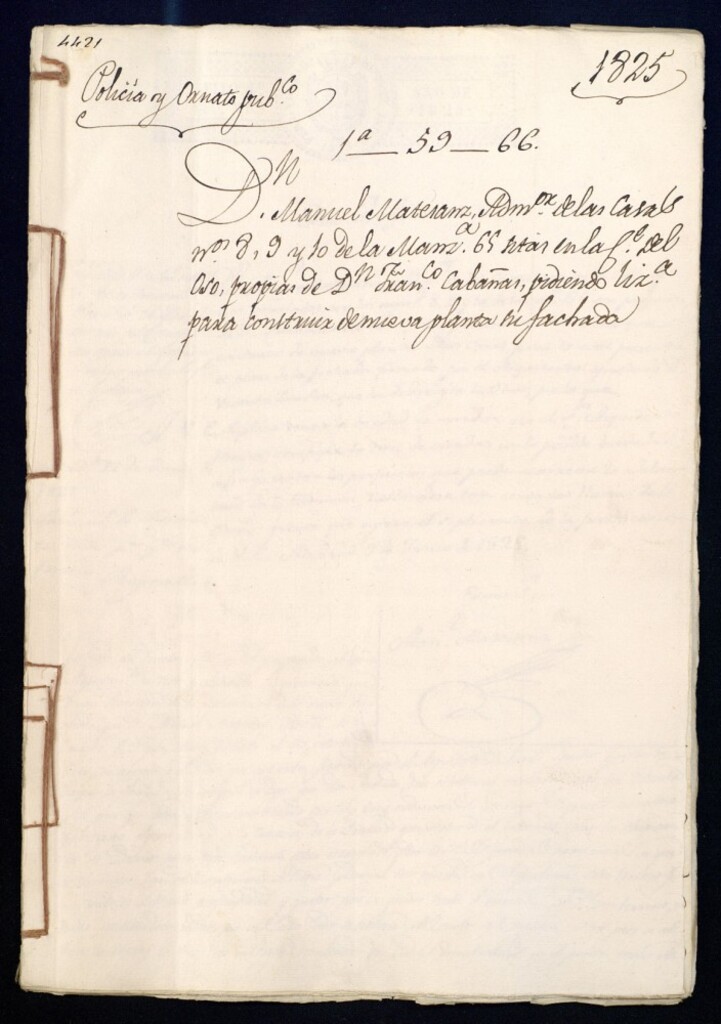 4421
1825
Policia y Ornato pub.co
1a — 59 — 66.
Dn
. Manuel Matesanz, Adm.or de las Casas
nos 8, 9 y 10 de la Manz.a 65 sitas en la C.e del
Oso, propias de Dn Fran.co Cabañas, pidiendo liz.a
para construir de nueva planta su fachada